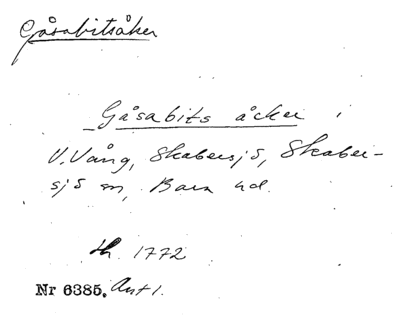 Gåsabitsåker
Gåsabits åcker i
V. Vång, Skabersjö, Skaber-
sjö sn, Bara hd.
lh. 1772
Nr 6385. Avt 1.